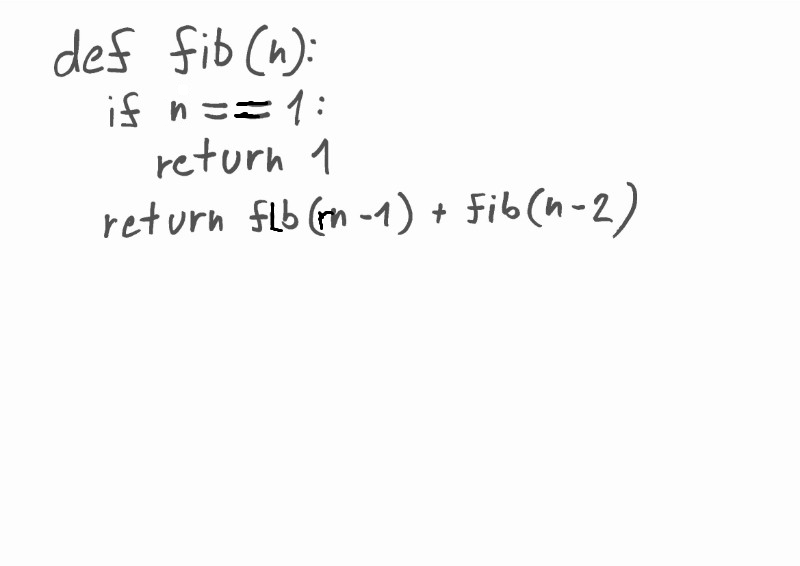 def fib(n):
if n == 1:
return 1
return fLb(rn-1) + fib(n-2)